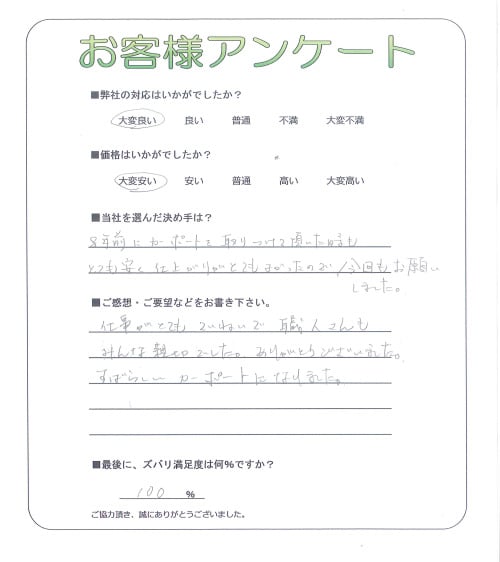 お客様アンケート
■弊社の対応はいかがでしたか？
大変良い 良い 普通 不満 大変不満
■価格はいかがでしたか？
大変安い 安い 普通 高い 大変高い
■当社を選んだ決め手は？
8年前にカーポートを取りつけて頂いた時も
とても安く仕上がりがとてもよかったので今回もお願い
しました。
■ご感想・ご要望などをお書き下さい。
仕事がとてもていねいで職人さんも
みんな親切でした。ありがとうございました。
すばらしいカーポートになりました。
■最後に、ズバリ満足度は何%ですか？
100 %
ご協力頂き、誠にありがとうございました。